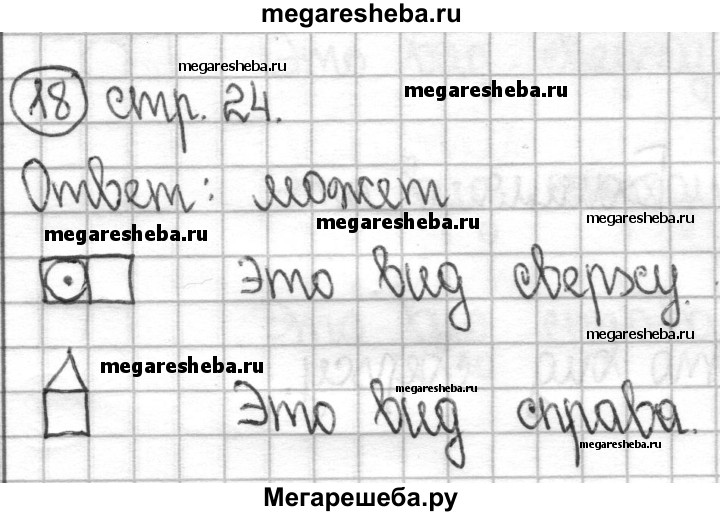 megaresheba.ru
megaresheba.ru
18 стр. 24.
megaresheba.ru
Ответ: может
megaresheba.ru
megaresheba.ru
megaresheba.ru
Это вид сверху.
megaresheba.ru
megaresheba.ru
megaresheba.ru
Это вид справа.
megaresheba.ru
Мегарешеба.ру